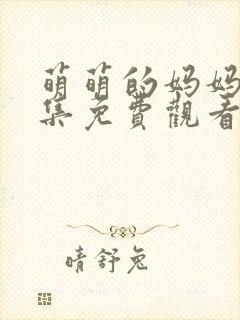 萌萌的妈妈
集免費觀看
晴舒兔